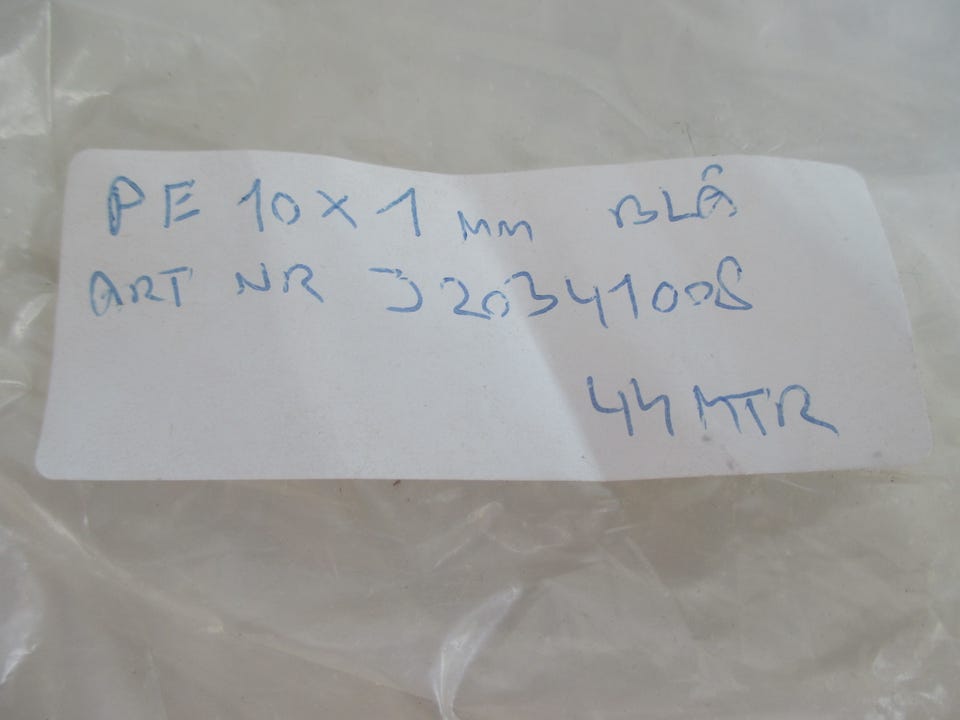 PE 10 X 1 mm BLÅ
ART NR J20341008
44 MTR